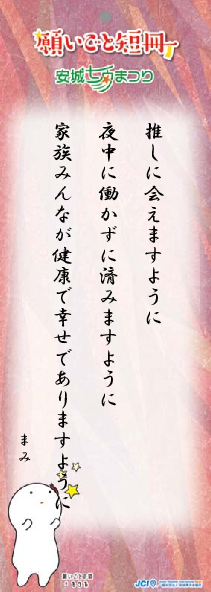 願いごと短冊
安城七夕まつり
推しに会えますように
夜中に働かずに済みますように
家族みんなが健康で幸せでありますように
まみ
願いごと短冊
JCI